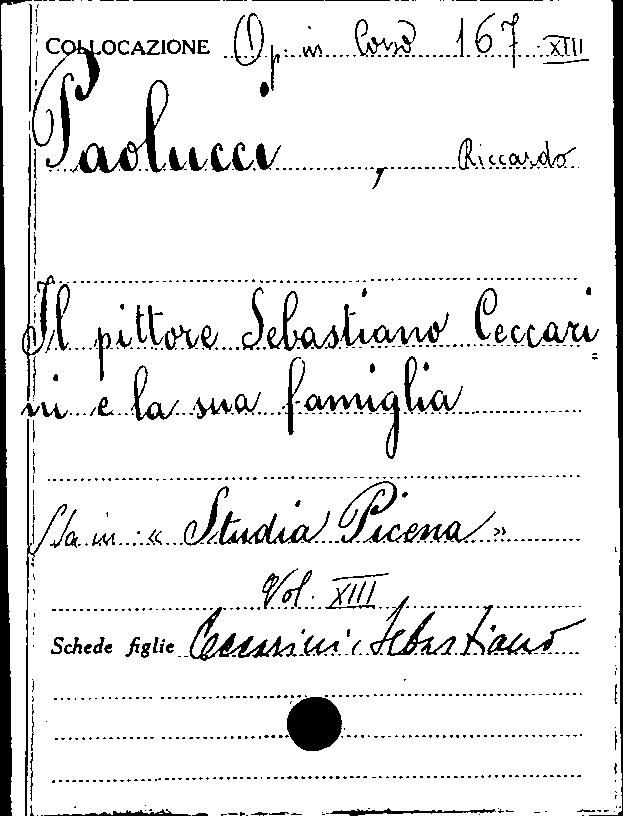 COLLOCAZIONE Op. in Corso 167 XIII
Paolucci, Riccardo
Il pittore Sebastiano Ceccari=
ni e la sua famiglia
Sta in: « Studia Picena »
Vol. XIII
Schede figlie Ceccarini, Sebastiano